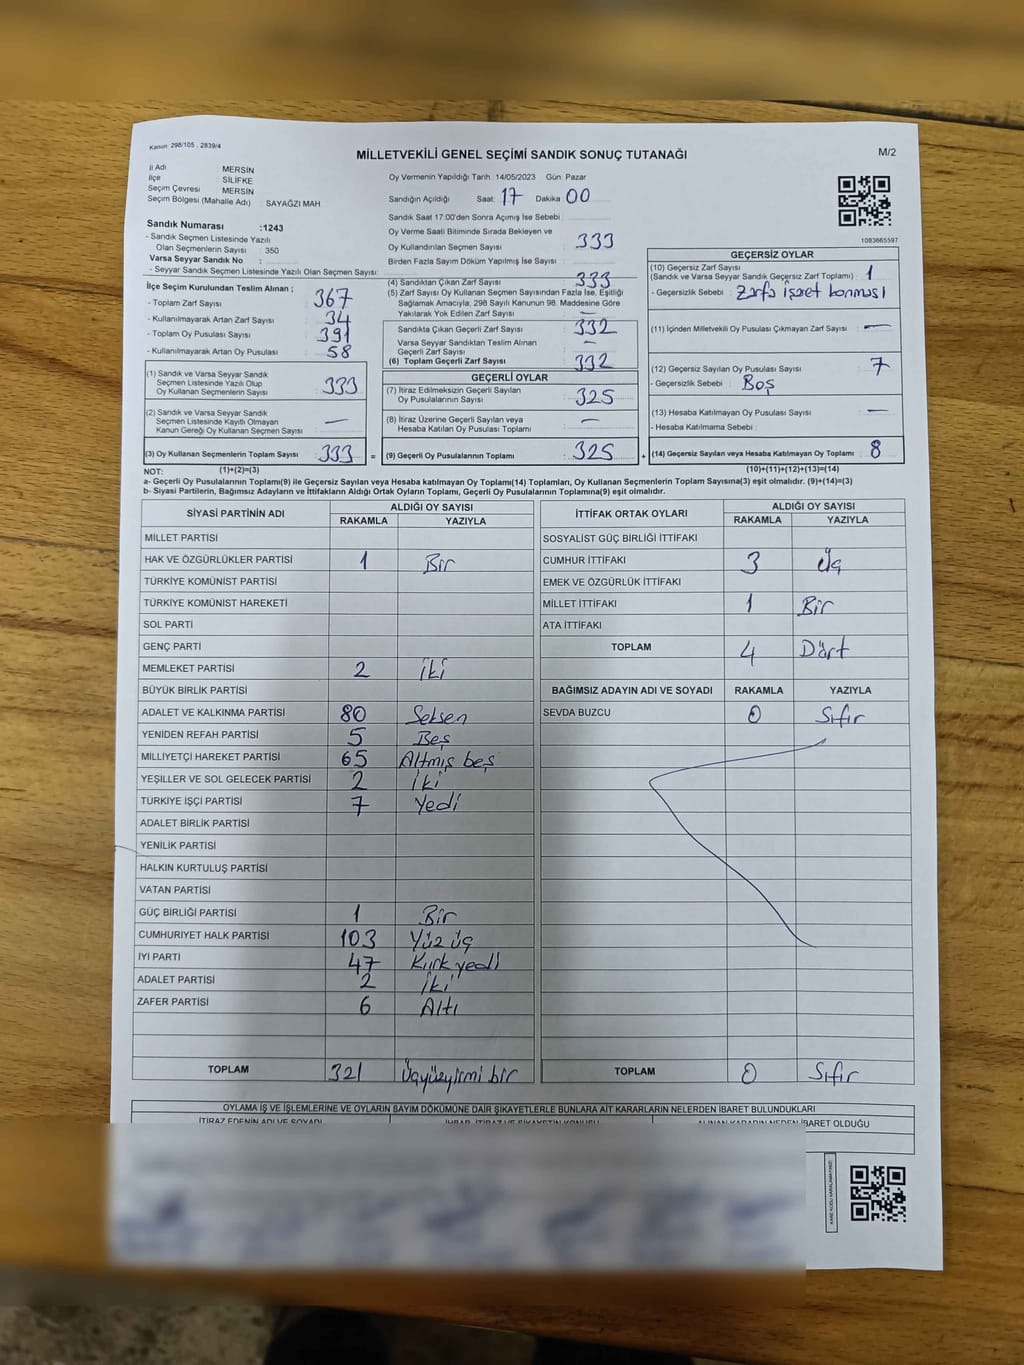 Kanun 298/105 , 2839/4
MİLLETVEKİLİ GENEL SEÇİMİ SANDIK SONUÇ TUTANAĞI
M/2
İl Adı MERSİN
İlçe SİLİFKE
Seçim Çevresi MERSİN
Seçim Bölgesi (Mahalle Adı) : SAYAĞZI MAH
Sandık Numarası :1243
- Sandık Seçmen Listesinde Yazılı
Olan Seçmenlerin Sayısı : 350
Varsa Seyyar Sandık No :
- Seyyar Sandık Seçmen Listesinde Yazılı Olan Seçmen Sayısı:
İlçe Seçim Kurulundan Teslim Alınan ;
- Toplam Zarf Sayısı : 367
- Kullanılmayarak Artan Zarf Sayısı : 34
- Toplam Oy Pusulası : 391
- Kullanılmayarak Artan Oy Pusulası : 58
(1) Sandık ve Varsa Seyyar Sandık
Seçmen Listesinde Yazılı Olup
Oy Kullanan Seçmenlerin Sayısı : 333
(2) Sandık ve Varsa Seyyar Sandık
Seçmen Listesinde Kayıtlı Olmayan
Kanun Gereği Oy Kullanan Seçmen Sayısı : —
(3) Oy Kullanan Seçmenlerin Toplam Sayısı : 333 =
Oy Vermenin Yapıldığı Tarih :14/05/2023 Gün: Pazar
Sandığın Açıldığı Saat: 17 Dakika 00
Sandık Saat 17:00'den Sonra Açımış İse Sebebi :
Oy Verme Saati Bitiminde Sırada Bekleyen ve
Oy Kullandırılan Seçmen Sayısı : 333
Birden Fazla Sayım Döküm Yapılmış İse Sayısı :
(4) Sandıktan Çıkan Zarf Sayısı : 333
(5) Zarf Sayısı Oy Kullanan Seçmen Sayısından Fazla İse, Eşitliği
Sağlamak Amacıyla, 298 Sayılı Kanunun 98. Maddesine Göre
Yakılarak Yok Edilen Zarf Sayısı : —
Sandıkta Çıkan Geçerli Zarf Sayısı : 332
Varsa Seyyar Sandıktan Teslim Alınan
Geçerli Zarf Sayısı : —
(6) Toplam Geçerli Zarf Sayısı : 332
GEÇERLİ OYLAR
(7) İtiraz Edilmeksizin Geçerli Sayılan
Oy Pusulalarının Sayısı : 325
(8) İtiraz Üzerine Geçerli Sayılan veya
Hesaba Katılan Oy Pusulası Toplamı : —
(9) Geçerli Oy Pusulalarının Toplamı : 325 +
1083665597
GEÇERSİZ OYLAR
(10) Geçersiz Zarf Sayısı
(Sandık ve Varsa Seyyar Sandık Geçersiz Zarf Toplamı) : 1
- Geçersizlik Sebebi : Zarfa işaret konması
(11) İçinden Milletvekili Oy Pusulası Çıkmayan Zarf Sayısı : —
(12) Geçersiz Sayılan Oy Pusulası Sayısı : 7
- Geçersizlik Sebebi : Boş
(13) Hesaba Katılmayan Oy Pusulası Sayısı : —
- Hesaba Katılmama Sebebi :
(14) Geçersiz Sayılan veya Hesaba Katılmayan Oy Toplamı : 8
NOT: (1)+(2)=(3) (10)+(11)+(12)+(13)=(14)
a- Geçerli Oy Pusulaları Toplamı(9) ile Geçersiz Sayılan veya Hesaba katılmayan Oy Toplamı(14) Toplamları, Oy Kullanan Seçmenlerin Toplam Sayısına(3) eşit olmalıdır. (9)+(14)=(3)
b- Siyasi Partilerin, Bağımsız Adayların ve İttifakların Aldığı Ortak Oyların Toplamı, Geçerli Oy Pusulalarının Toplamına(9) eşit olmalıdır.
SİYASİ PARTİNİN ADI ALDIĞI OY SAYISI
RAKAMLA YAZIYLA
MİLLET PARTİSİ
HAK VE ÖZGÜRLÜKLER PARTİSİ 1 Bir
TÜRKİYE KOMÜNİST PARTİSİ
TÜRKİYE KOMÜNİST HAREKETİ
SOL PARTİ
GENÇ PARTİ
MEMLEKET PARTİSİ 2 İki
BÜYÜK BİRLİK PARTİSİ
ADALET VE KALKINMA PARTİSİ 80 Seksen
YENİDEN REFAH PARTİSİ 5 Beş
MİLLİYETÇİ HAREKET PARTİSİ 65 Altmış beş
YEŞİLLER VE SOL GELECEK PARTİSİ 2 İki
TÜRKİYE İŞÇİ PARTİSİ 7 Yedi
ADALET BİRLİK PARTİSİ
YENİLİK PARTİSİ
HALKIN KURTULUŞ PARTİSİ
VATAN PARTİSİ
GÜÇ BİRLİĞİ PARTİSİ 1 Bir
CUMHURİYET HALK PARTİSİ 103 Yüz üç
İYİ PARTİ 47 Kırk yedi
ADALET PARTİSİ 2 İki
ZAFER PARTİSİ 6 Altı
TOPLAM 321 Üçyüzyirmi bir
İTTİFAK ORTAK OYLARI ALDIĞI OY SAYISI
RAKAMLA YAZIYLA
SOSYALİST GÜÇ BİRLİĞİ İTTİFAKI
CUMHUR İTTİFAKI 3 Üç
EMEK VE ÖZGÜRLÜK İTTİFAKI
MİLLET İTTİFAKI 1 Bir
ATA İTTİFAKI
TOPLAM 4 Dört
BAĞIMSIZ ADAYIN ADI VE SOYADI RAKAMLA YAZIYLA
SEVDA BUZCU 0 Sıfır
TOPLAM 0 Sıfır
OYLAMA İŞ VE İŞLEMLERİNE VE OYLARIN SAYIM DÖKÜMÜNE DAİR ŞİKAYETLERLE BUNLARA AİT KARARLARIN NELERDEN İBARET BULUNDUKLARI
İTİRAZ EDENİN ADI VE SOYADI İHBAR, İTİRAZ VE ŞİKAYETİN KONUSU ALINAN KARARIN NEDEN İBARET OLDUĞU